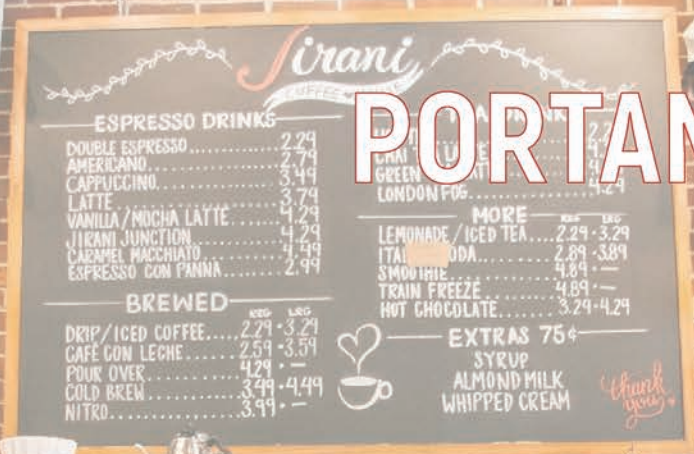 Jirani
COFFEE
PORTAN
ESPRESSO DRINKS
DOUBLE ESPRESSO 2.29
AMERICANO 2.79
CAPPUCCINO 3.49
LATTE 3.79
VANILLA/MOCHA LATTE 4.29
JIRANI JUNCTION 4.29
CARAMEL MACCHIATO 4.49
ESPRESSO CON PANNA 2.99
BREWED
REG LRG
DRIP/ICED COFFEE 2.29 • 3.29
CAFÉ CON LECHE 2.59 • 3.59
POUR OVER 4.29 • —
COLD BREW 3.99 • 4.49
NITRO 3.99 • —
CHAI
GREEN
LONDON FOG 4.29
MORE
REG LRG
LEMONADE/ICED TEA 2.29 • 3.29
2.89 • 3.89
SMOOTHIE 4.89 • —
TRAIN FREEZE 4.89 • —
HOT CHOCOLATE 3.29 • 4.29
EXTRAS 75¢
SYRUP
ALMOND MILK
WHIPPED CREAM
thank
you